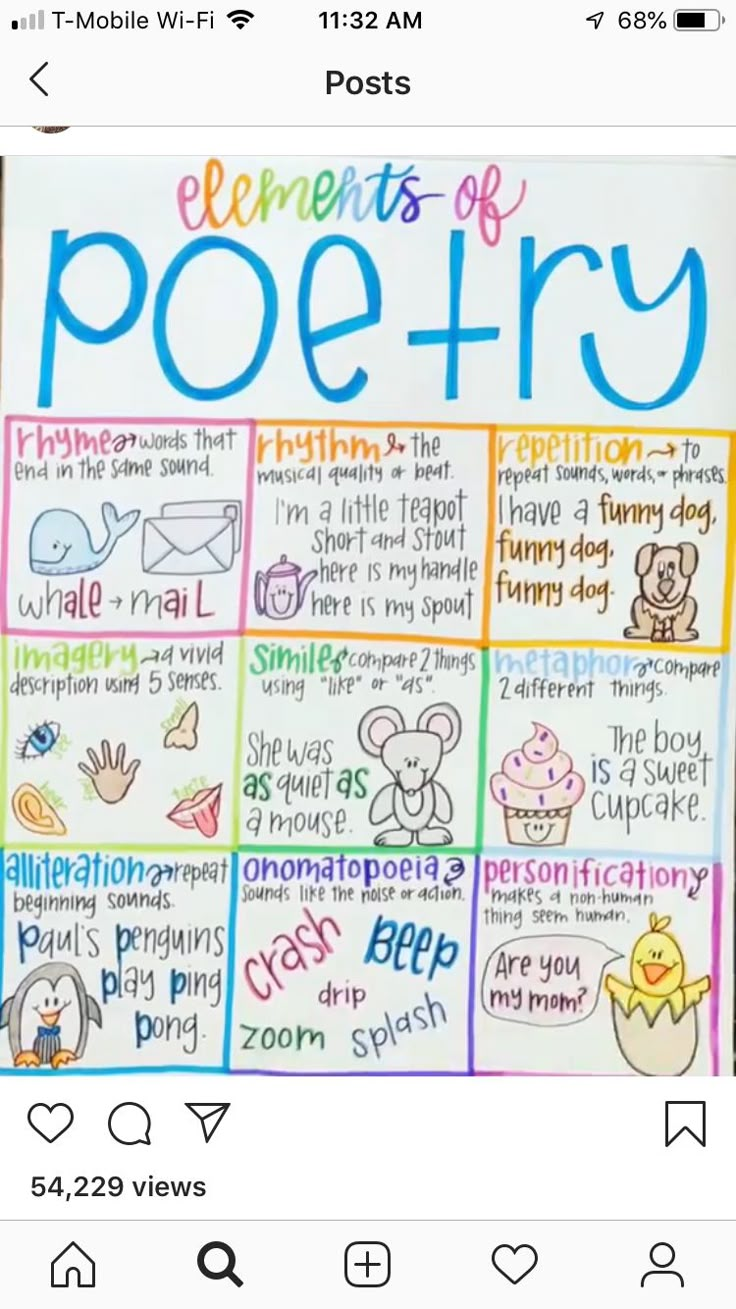 T-Mobile Wi-Fi 11:32 AM 68%
Posts
elements of
poetry
rhyme → words that
end in the same sound.
whale → mail
rhythm → the
musical quality or beat.
I'm a little teapot
short and stout
here is my handle
here is my spout
repetition → to
repeat sounds, words, or phrases.
I have a funny dog,
funny dog,
funny dog.
imagery → a vivid
description using 5 senses.
see
feel
smell
hear
taste
simile → compare 2 things
using "like" or "as".
She was
as quiet as
a mouse.
metaphor → compare
2 different things.
The boy
is a sweet
cupcake.
alliteration → repeat
beginning sounds.
paul's penguins
play ping
pong.
onomatopoeia →
Sounds like the noise or action.
crash
Beep
drip
zoom
splash
personification →
makes a non-human
thing seem human.
Are you
my mom?
54,229 views